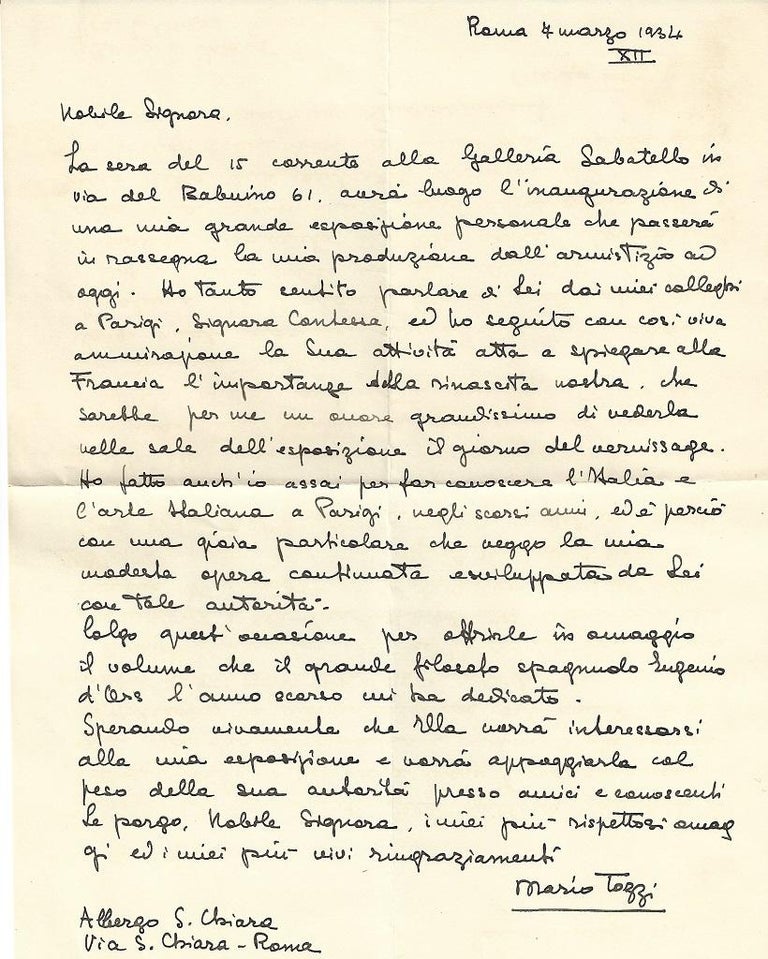 Roma 7 marzo 1934
XII
Nobile Signora,
La sera del 15 corrente alla Galleria Sabatello in
via del Babuino 61, avrà luogo l'inaugurazione di
una mia grande esposizione personale che passerà
in rassegna la mia produzione dall'armistizio ad
oggi. Ho tanto sentito parlare di Lei dai miei colleghi
a Parigi, Signora Contessa, ed ho seguito con così viva
ammirazione la Sua attività atta a spiegare alla
Francia l'importanza della rinascita nostra, che
sarebbe per me un onore grandissimo di vederla
nelle sale dell'esposizione il giorno del vernissage.
Ho fatto anch'io assai per far conoscere l'Italia e
l'arte Italiana a Parigi, negli scorsi anni, ed è perciò
con una gioia particolare che veggo la mia
modesta opera continuata e sviluppata da Lei
con tale autorità.
Colgo quest'occasione per offrirle in omaggio
il volume che il grande filosofo spagnuolo Eugenio
d'Ors l'anno scorso mi ha dedicato.
Sperando vivamente che Ella vorrà interessarsi
alla mia esposizione e vorrà appoggiarla col
peso della sua autorità presso amici e conoscenti
Le porgo, Nobile Signora, i miei più rispettosi omag
gi ed i miei più vivi ringraziamenti
Mario Tozzi
Albergo S. Chiara
Via S. Chiara - Roma